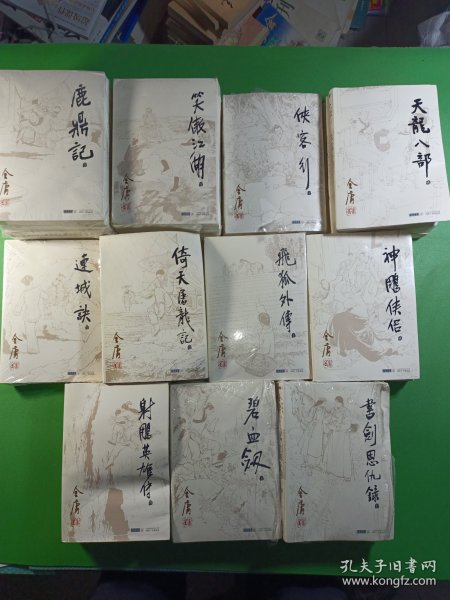 鹿鼎記
金庸
笑傲江湖
金庸
俠客行
金庸
天龍八部
金庸
連城訣
金庸
倚天屠龍記
金庸
飛狐外傳
金庸
神鵰俠侶
金庸
射鵰英雄傳
金庸
碧血劍
金庸
書劍恩仇錄
金庸
孔夫子旧书网
www.kongfz.com